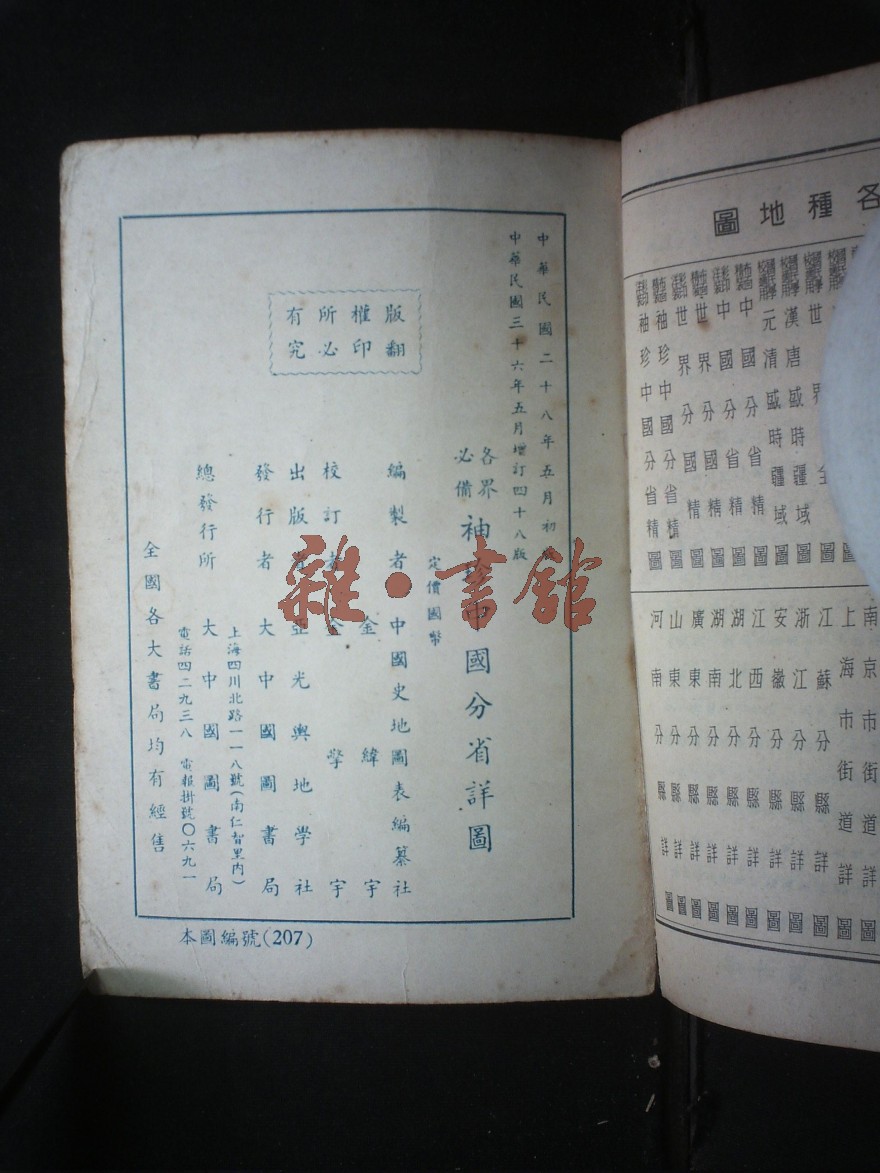 各種地圖
世界全圖
漢唐盛時疆域圖
元清盛時疆域圖
中國分省精圖
中國分省精圖
世界分國精圖
世界分國精圖
袖珍中國分省精圖
袖珍中國分省精圖
南京市街道詳圖
上海市街道詳圖
江蘇分縣詳圖
浙江分縣詳圖
安徽分縣詳圖
江西分縣詳圖
湖北分縣詳圖
湖南分縣詳圖
廣東分縣詳圖
山東分縣詳圖
河南分縣詳圖
中華民國二十八年五月初
中華民國三十六年五月增訂四十八版
各界必備 袖珍中國分省詳圖
定價國幣
版權所有
翻印必究
編製者 中國史地圖表編纂社
金緯宇
校訂者 金擎宇
出版者 亞光輿地學社
發行者 大中國圖書局
總發行所 大中國圖書局
上海四川北路一一八號(南仁智里內)
電話四二九三八 電報掛號〇六九一
全國各大書局均有經售
本圖編號(207)
雜·書館